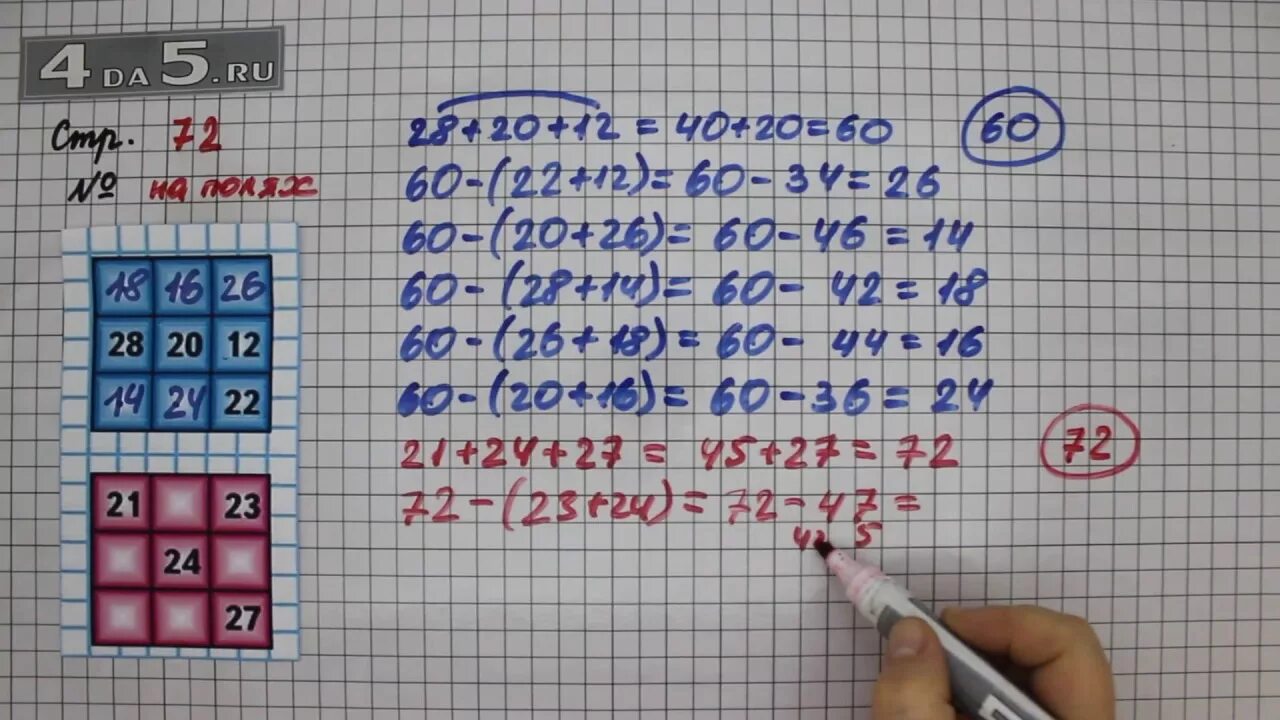 4DA5.RU
Стр. 72
№ на полях
18 16 26
28 20 12
14 24 22
21 23
24
27
28+20+12 = 40+20=60
60
60-(22+12)= 60-34=26
60-(20+26)= 60-46=14
60-(28+14)= 60- 42=18
60-(26+18)= 60- 44=16
60-(20+16)= 60-36= 24
21+24+27 = 45+27= 72
72
72-(23+24)= 72-47=
42 5